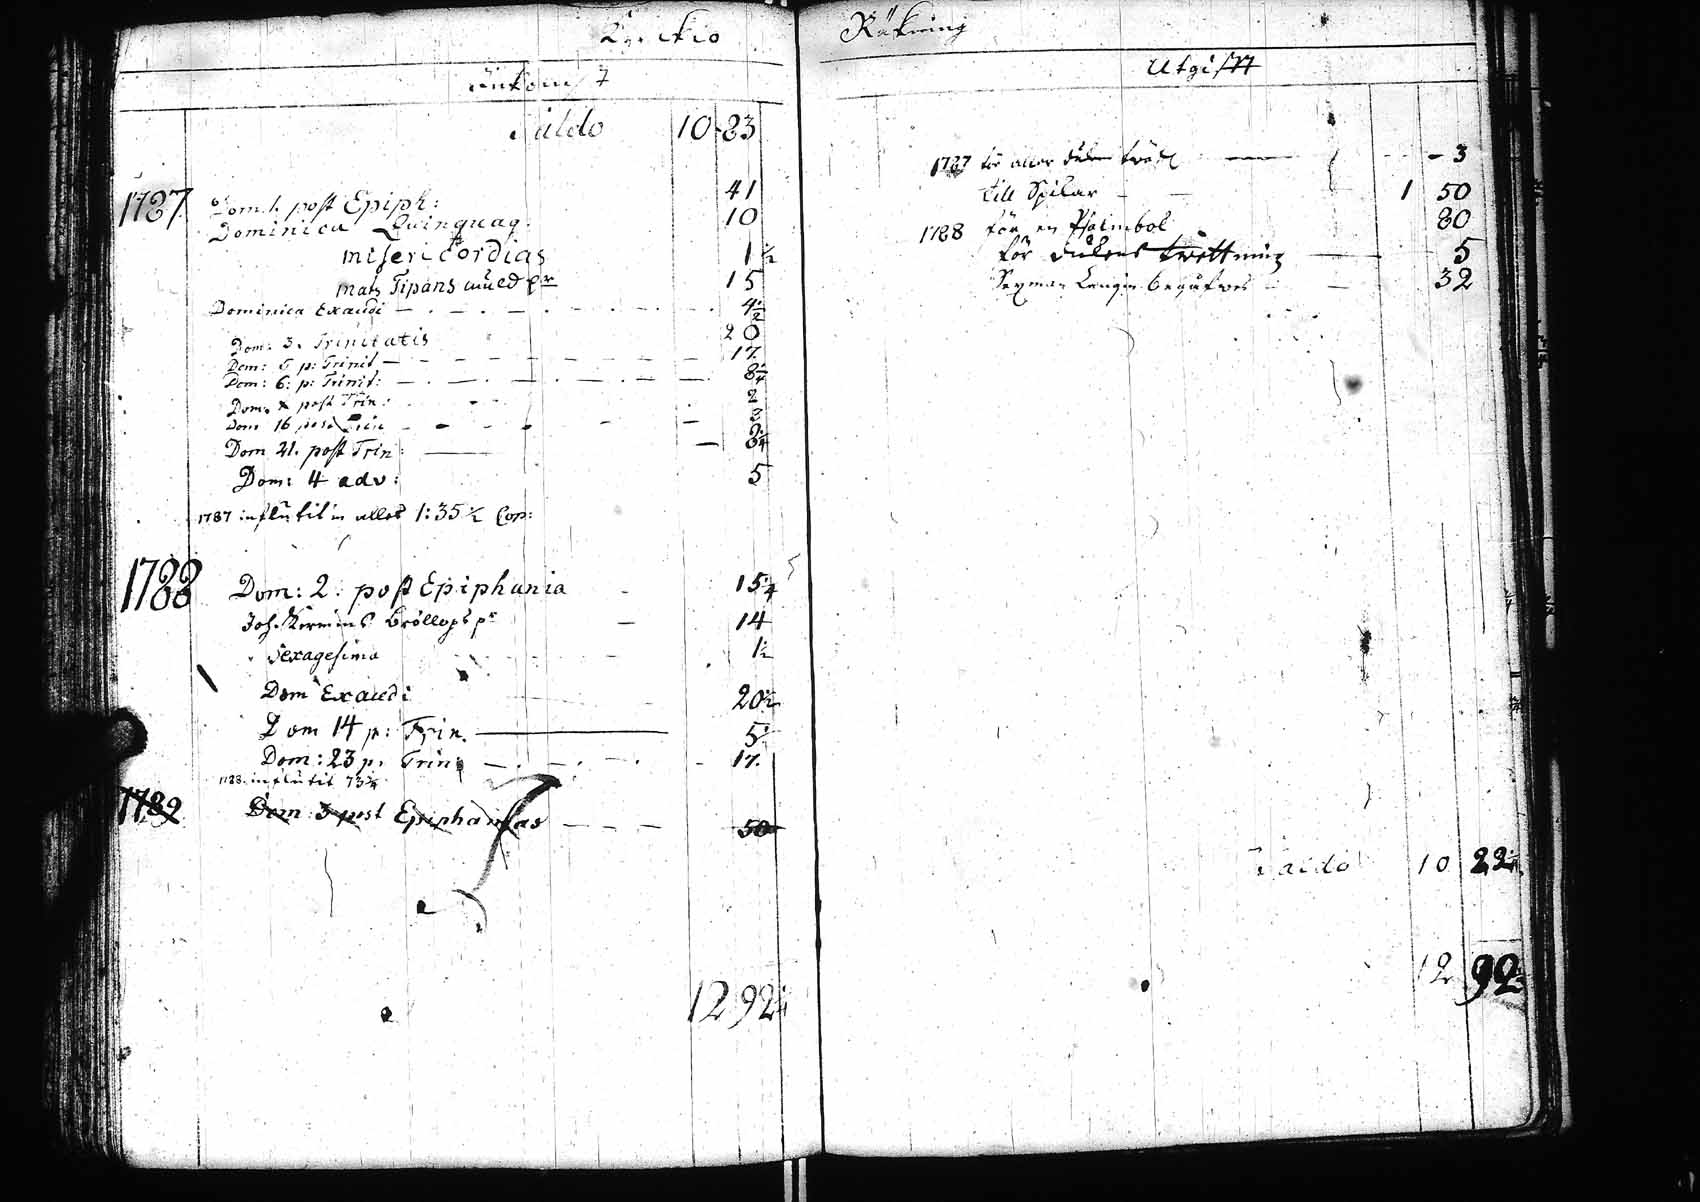 Räkning
Inkomst
Saldo 10 23
1787 Dom. 1. post Epiph: 41
Dominica Quinquag: 10
misericordias 1 ½
mats Tipans 15
Dominica Exaudi 4 ½
Dom: 3. Trinitatis 20
Dom: 5 p: Trinit 17.
Dom: 6: p: Trinit: 8 ¼
Dom. post Trin: 2
Dom 16 post Trin 2
Dom 21. post Trin:
Dom: 4 adv: 5
1787 influtit in alles 1:35 ½ Cop:
1788 Dom: 2. post Epiphania 15 ¼
Joh. Bröllops pr 14
Sexagesima 1 ½
Dom Exaudi 20 ½
Dom 14 p: Trin. 5
Dom: 23 p. Trin: 17.
1788. influtit 73 ¾
1789 Dom: 3 post Epiphanias 50
12 92
Utgift
1787 för - 3
till Spikar 1 50
1788 för en Psalmbok 80
för dukens twettning 5
32
Saldo 10 22
12 92